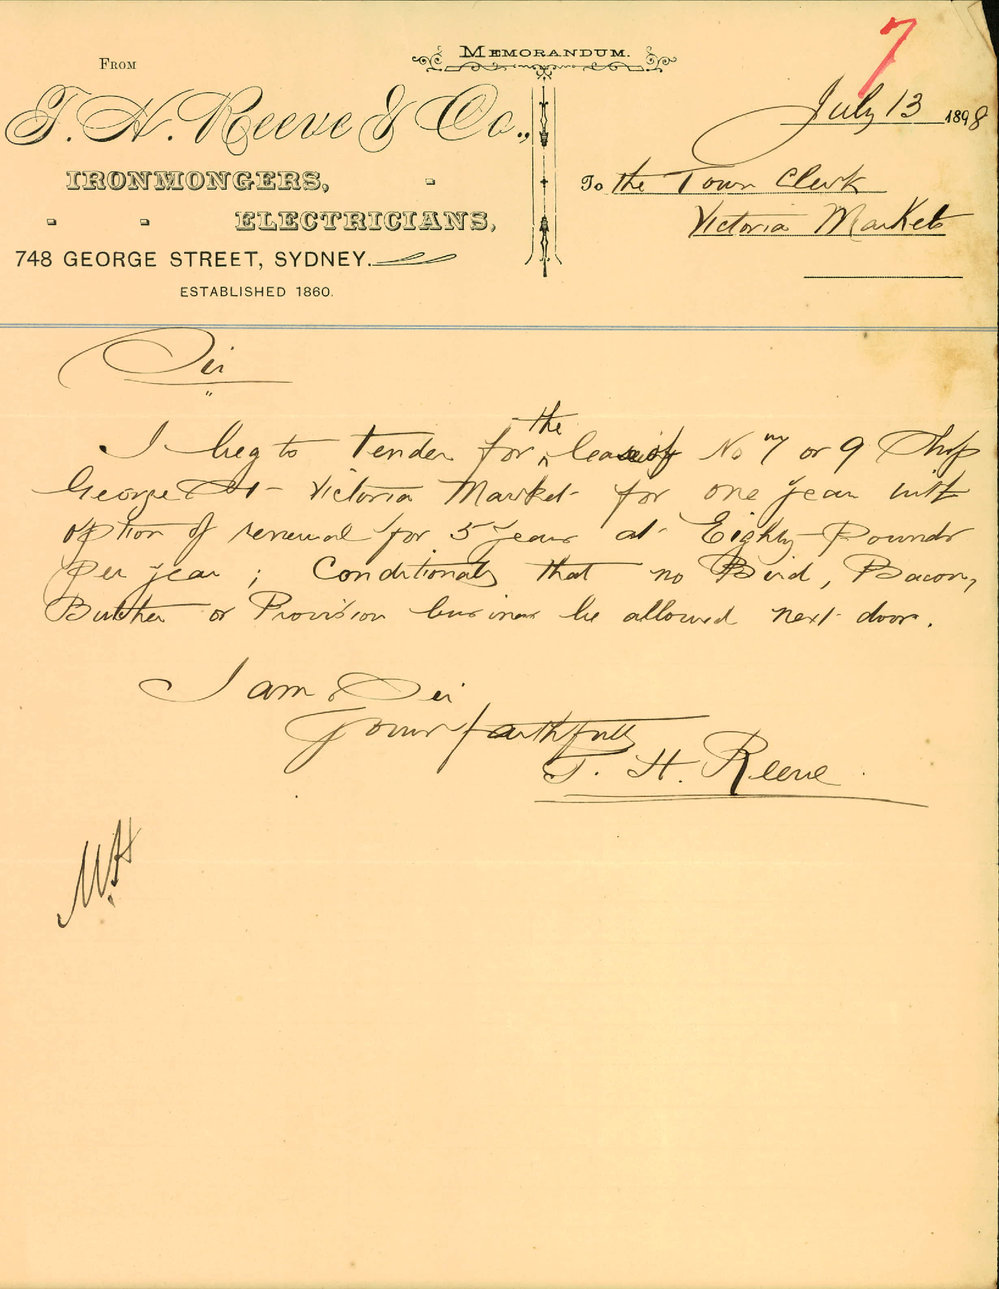 7
MEMORANDUM.
FROM
T. H. Reeve & Co.,
IRONMONGERS,
ELECTRICIANS,
748 GEORGE STREET, SYDNEY.
ESTABLISHED 1860.
July 13 1898
To the Town Clerk
Victoria Markets
Sir
I beg to tender for the lease of No 7 or 9 Shop
George St Victoria Market for one year with
option of renewal for 5 years at Eighty Pounds
per year; Conditionaly that no Bird, Bacon,
Butcher or Provision business be allowed next door.
I am Sir
Yours faithfully
T. H. Reeve